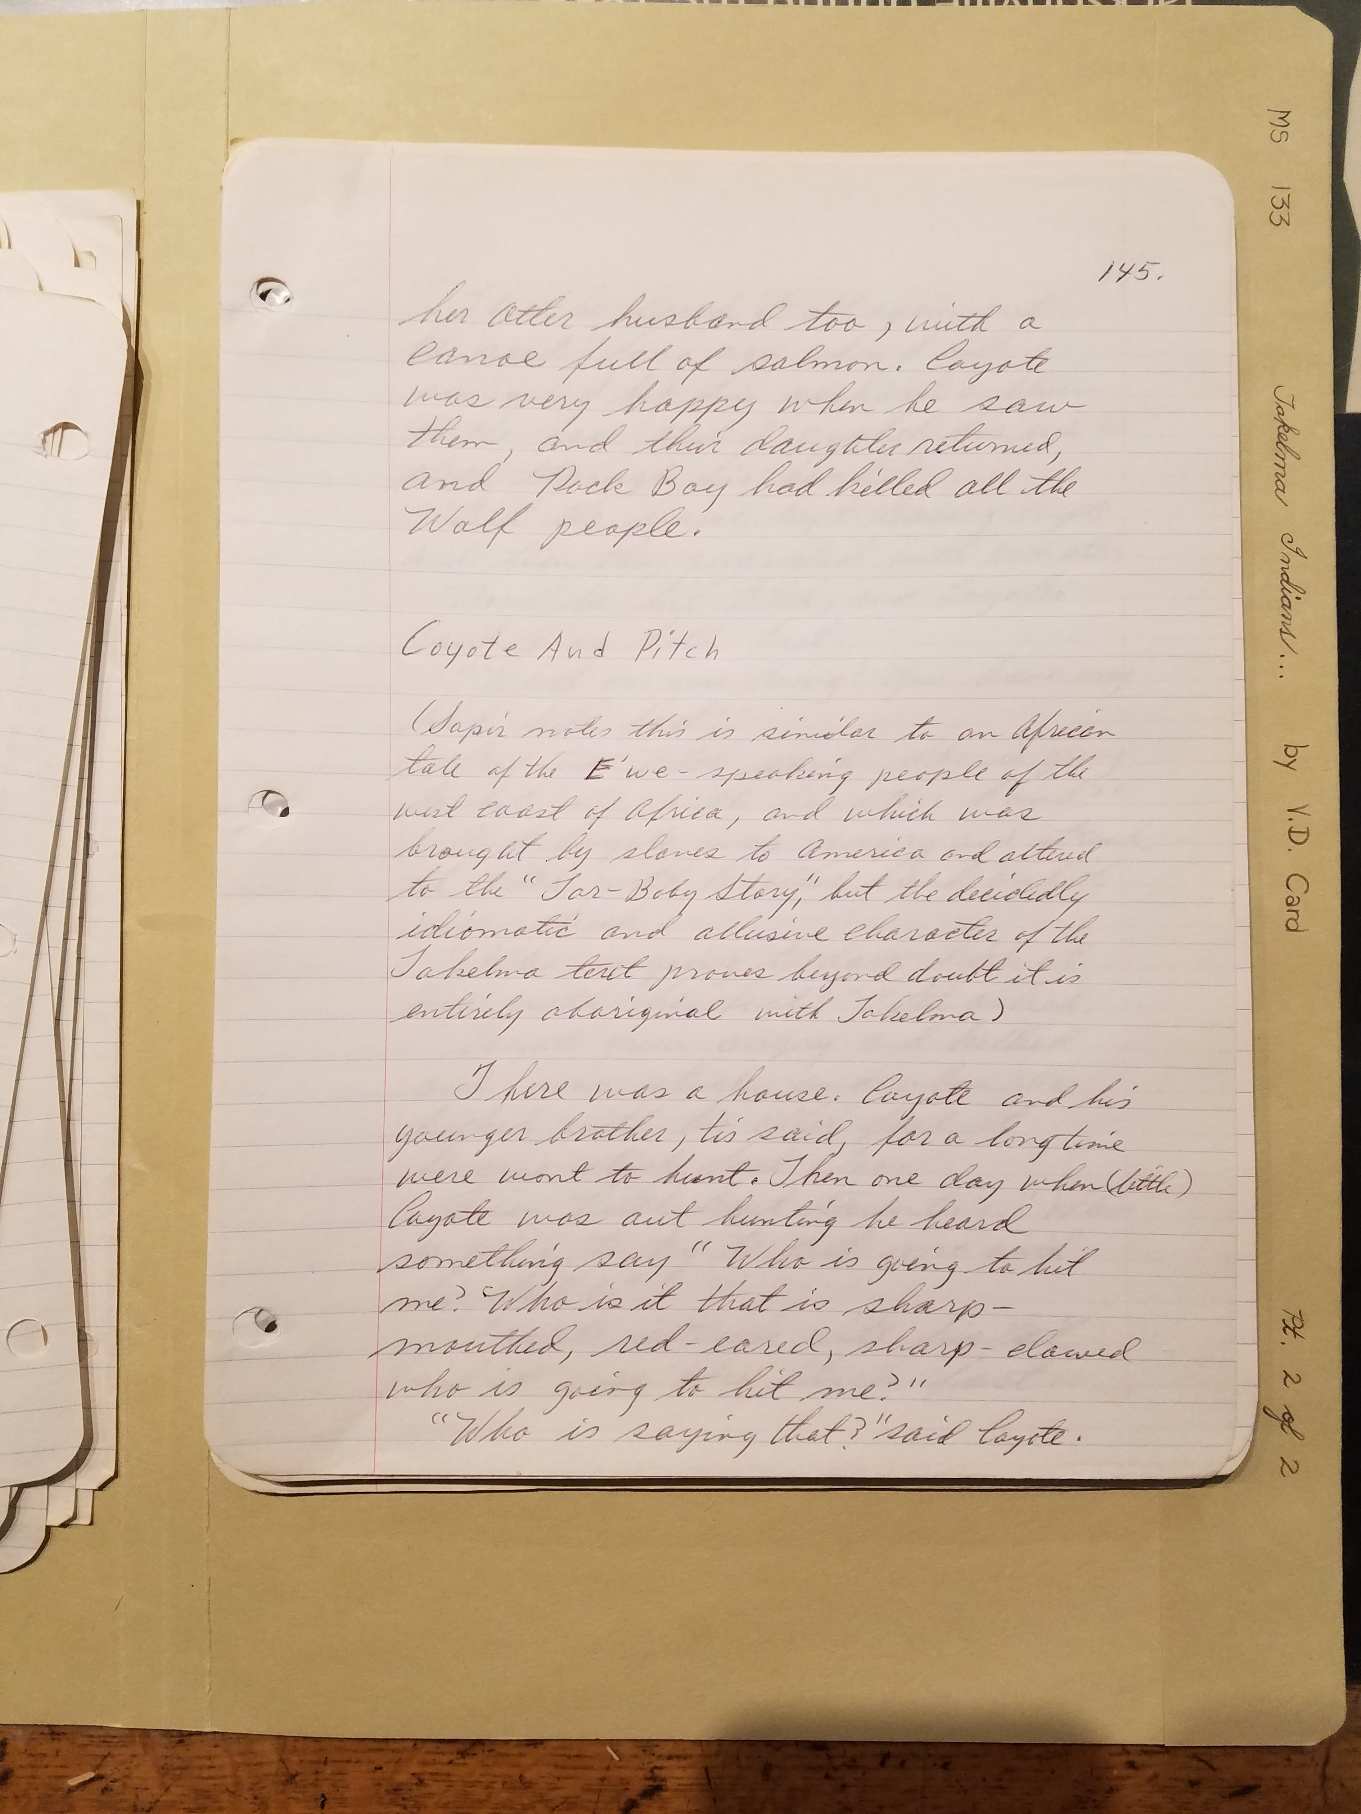 145.
her otter husband too, with a
canoe full of salmon. Coyote
was very happy when he saw
them, and their daughter returned,
and Rock Boy had killed all the
Wolf people.
Coyote And Pitch
(Sapir notes this is similar to an African
tale of the E'we-speaking people of the
west coast of Africa, and which was
brought by slaves to America and altered
to the "Tar-Baby Story," but the decidedly
idiomatic and allusive character of the
Takelma text proves beyond doubt it is
entirely aboriginal with Takelma)
There was a house. Coyote and his
younger brother, tis said, for a long time
were wont to hunt. Then one day when (little)
Coyote was out hunting he heard
something say "Who is going to hit
me? "Who is it that is sharp-
mouthed, red-eared, sharp-clawed
who is going to hit me?"
"Who is saying that?" said Coyote.
MS 133 Takelma Indians... by V.D. Card Pt. 2 of 2